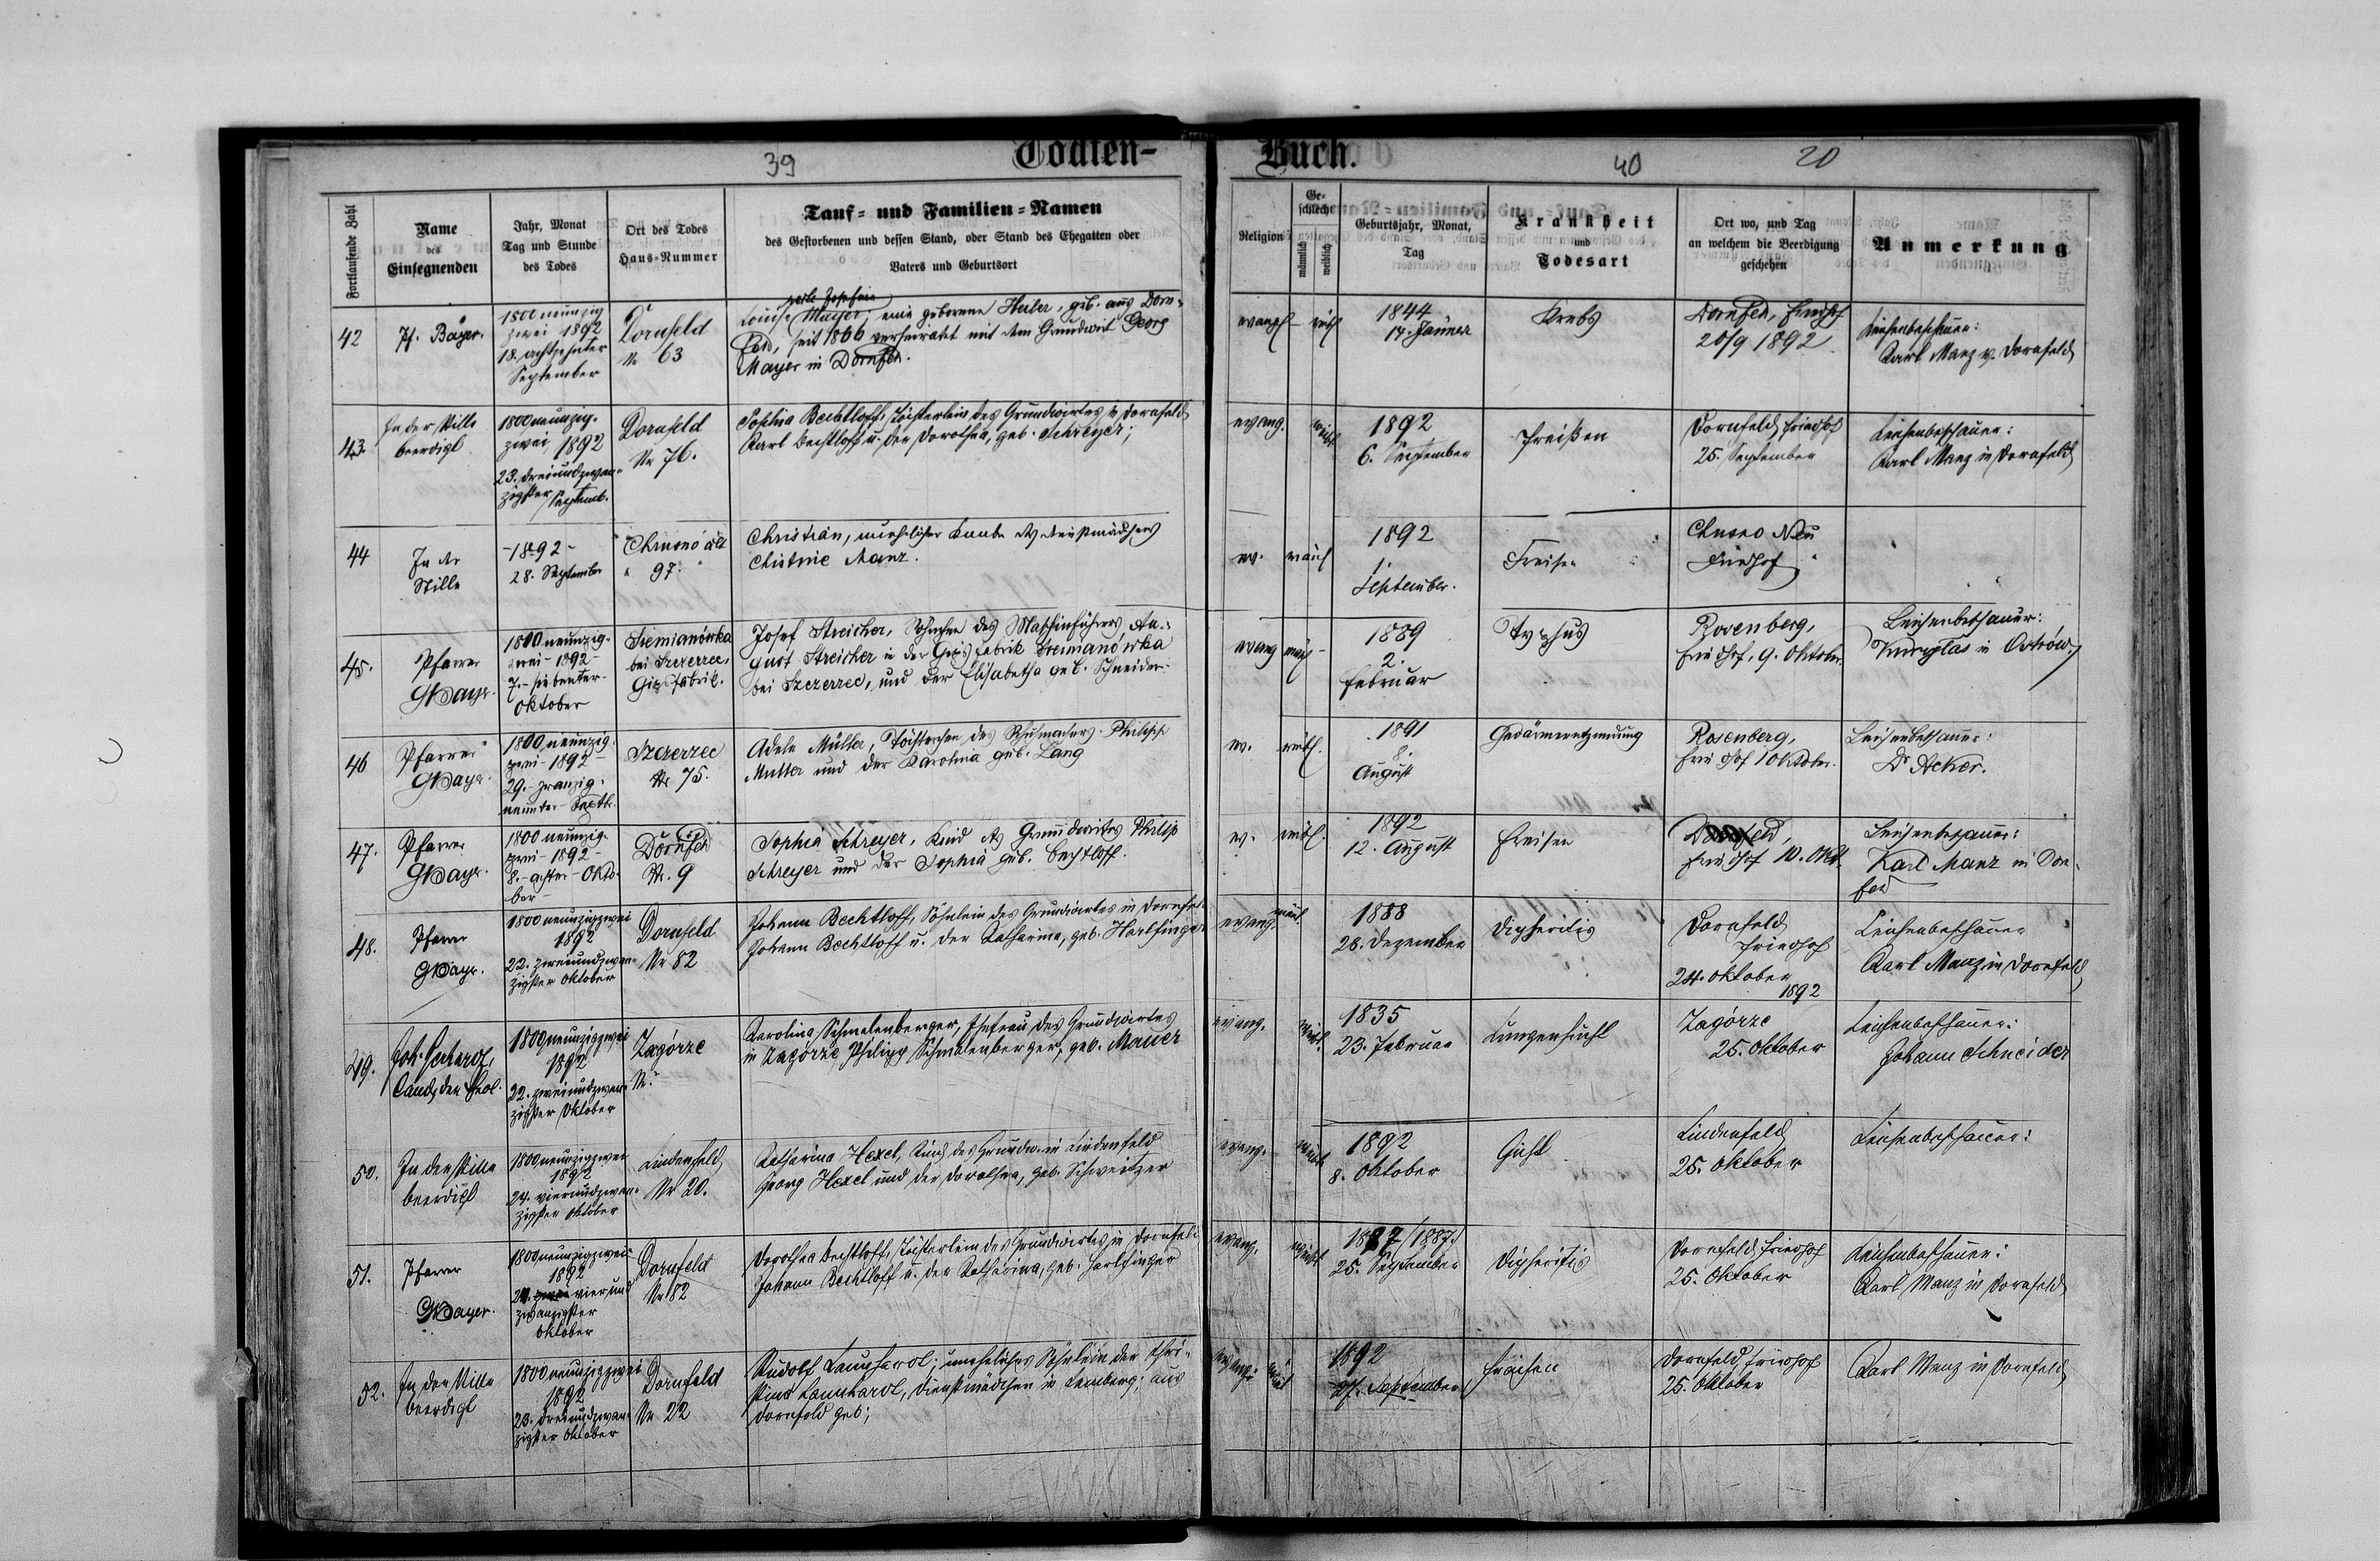 39
Todten-
Buch.
40
20
Fortlaufende Zahl
Name
des
Einsegnenden
Jahr, Monat
Tag und Stunde
des Todes
Ort des Todes
Haus-Nummer
Tauf- und Familien-Namen
des Gestorbenen und dessen Stand, oder Stand des Ehegatten oder
Vaters und Geburtsort
Religion
Ge-
schlecht
männlich
weiblich
Geburtsjahr, Monat,
Tag
Krankheit
und
Todesart
Ort wo, und Tag
an welchem die Beerdigung
geschehen
Anmerkung
42
Pf. Bäyer.
1800 neunzig
zwei 1892
18. achtzehnter
September
Dornfeld
Nr 63
Louise Mayer, eine geborene Heiler, geb. aus Dorn-
feld, seit 1866 verheiratet mit dem Grundwirt Georg
Mayer in Dornfeld.
evangl
weibl
1844
17. Jänner
Krebs
Dornfeld, Friedhf
20/9 1892
Leichenbeschauer:
Karl Manz v. Dornfeld
43.
In der Stille
beerdigt
1800 neunzig-
zwei, 1892
23. dreiundzwan-
zigster Septemb.
Dornfeld
Nr 76.
Sophia Bechtloff, Töchterlein des Grundwirtes in Dornfeld
Karl Bechtloff u. der Dorothea, geb. Schreyer;
evang.
weibl
1892
6. September
Freißen
Dornfeld, Friedhof
25. September
Leichenbeschauer:
Karl Manz in Dornfeld
44
In der
Stille
-1892-
28. September
Chrusno alt
" 97. "
Christian, unehelicher Knabe des Dienstmädchens
Christine Manz.
ev.
männl
1892
1.
September.
Freisen
Chusno Neu
Friedhof
45.
Pfarrer
GBayer.
1800 neunzig-
zwei - 1892 -
7. - siebenter -
Oktober
Siemianówka
bei Szczerzec,
Gipsfabrik.
Josef Streicher, Söhnchen des Maschinführers Au-
gust Streicher in der Gipsfabrik Siemianówka
bei Szczerzec, und der Elisabetha geb. Schneider.
evang
männl -
1889
2.
Februar
Typhus
Rosenberg,
Friedhof, 9. Oktober
Leichenbeschauer:
in Ostrów
46
Pfarrer
GBayer.
1800 neunzig-
zwei - 1892 -
29. - zwanzig-
neunter - Septb.
Szczerzec
Nr 75.
Adele Müller, Töchterchen des Schuhmachers Philipp
Müller und der Karolina geb. Lang
ev.
weibl.
1891
8.
August
Gedärmentzündung
Rosenberg,
Friedhof 1 Oktober.
Leichenbeschauer:
Dr Acker.
47.
Pfarrer
GBayer.
1800 neunzig-
zwei - 1892 -
8. - achter - Okto-
ber
Dornfeld
Nr. 9
Sophia Schreyer, Kind des Grundwirtes Philip
Schreyer und der Sophia geb. Bechtloff.
ev.
weibl.
1892
12. August
Freisen
Dornfeld,
Friedhof 10. Okt.
Leichenbeschauer:
Karl Manz in Dorn-
feld
48.
Pfarrer
GBayer.
1800 neunzigzwei
1892
22. zweiundzwan-
zigster Oktober
Dornfeld
Nr 82
Johann Bechtloff, Söhnlein des Grundwirtes in Dornfeld
Johann Bechtloff u. der Katharina, geb. Harlfinger
evang.
männl
1888
28. Dezember
Dipheritis
Dornfeld
Friedhof
24. Oktober
1892
Leichenbeschauer
Karl Manz in Dornfeld
49.
Joh.
Cand. der Theol.
1800 neunzigzwei
1892
22. zweiundzwan-
zigster Oktober
Zagórze
Nr.
Karolina Schmalenberger, Ehefrau des Grundwirtes
in Zagórze Philipp Schmalenberger, geb. Mauer
evang.
weibl.
1835
23. Februar
Lungensucht
Zagórze
25. Oktober
Leichenbeschauer:
Johann Schneider
50.
In der Stille
beerdigt
1800 neunzigzwei
1892
24. vierundzwan-
zigster Oktober
Lindenfeld
Nr 20.
Katharina Hexel, Kind des Grundw. in Lindenfeld
Georg Hexel und der Dorothea, geb. Schweitzer
evang.
weibl.
1892
8. Oktober
Gicht
Lindenfeld
25. Oktober
Leichenbeschauer:
51.
Pfarrer
GBayer.
1800 neunzigzwei
1892
24. vierund
zwanzigster
Oktober
Dornfeld
Nr 82
Dorothea Bechtloff, Töchterlein des Grundwirtes in Dornfeld
Johann Bechtloff u. der Katharina, geb. Harlfinger
evang.
weibl
1887 (1887.)
25. September
Dipheritis
Dornfeld, Friedhof
25. Oktober
Leichenbeschauer:
Karl Manz in Dornfeld
52.
In der Stille
beerdigt
1800 neunzigzwei
1892
23. dreiundzwan-
zigster Oktober
Dornfeld
Nr 22
Rudolf Launhardt; uneheliches Söhnlein der Chri-
stina Launhardt, Dienstmädchen in Lemberg; aus
Dornfeld geb;
evang.
männl
1892
27. September
Fraisen
Dornfeld, Friedhof
25. Oktober
Karl Manz in Dornfeld